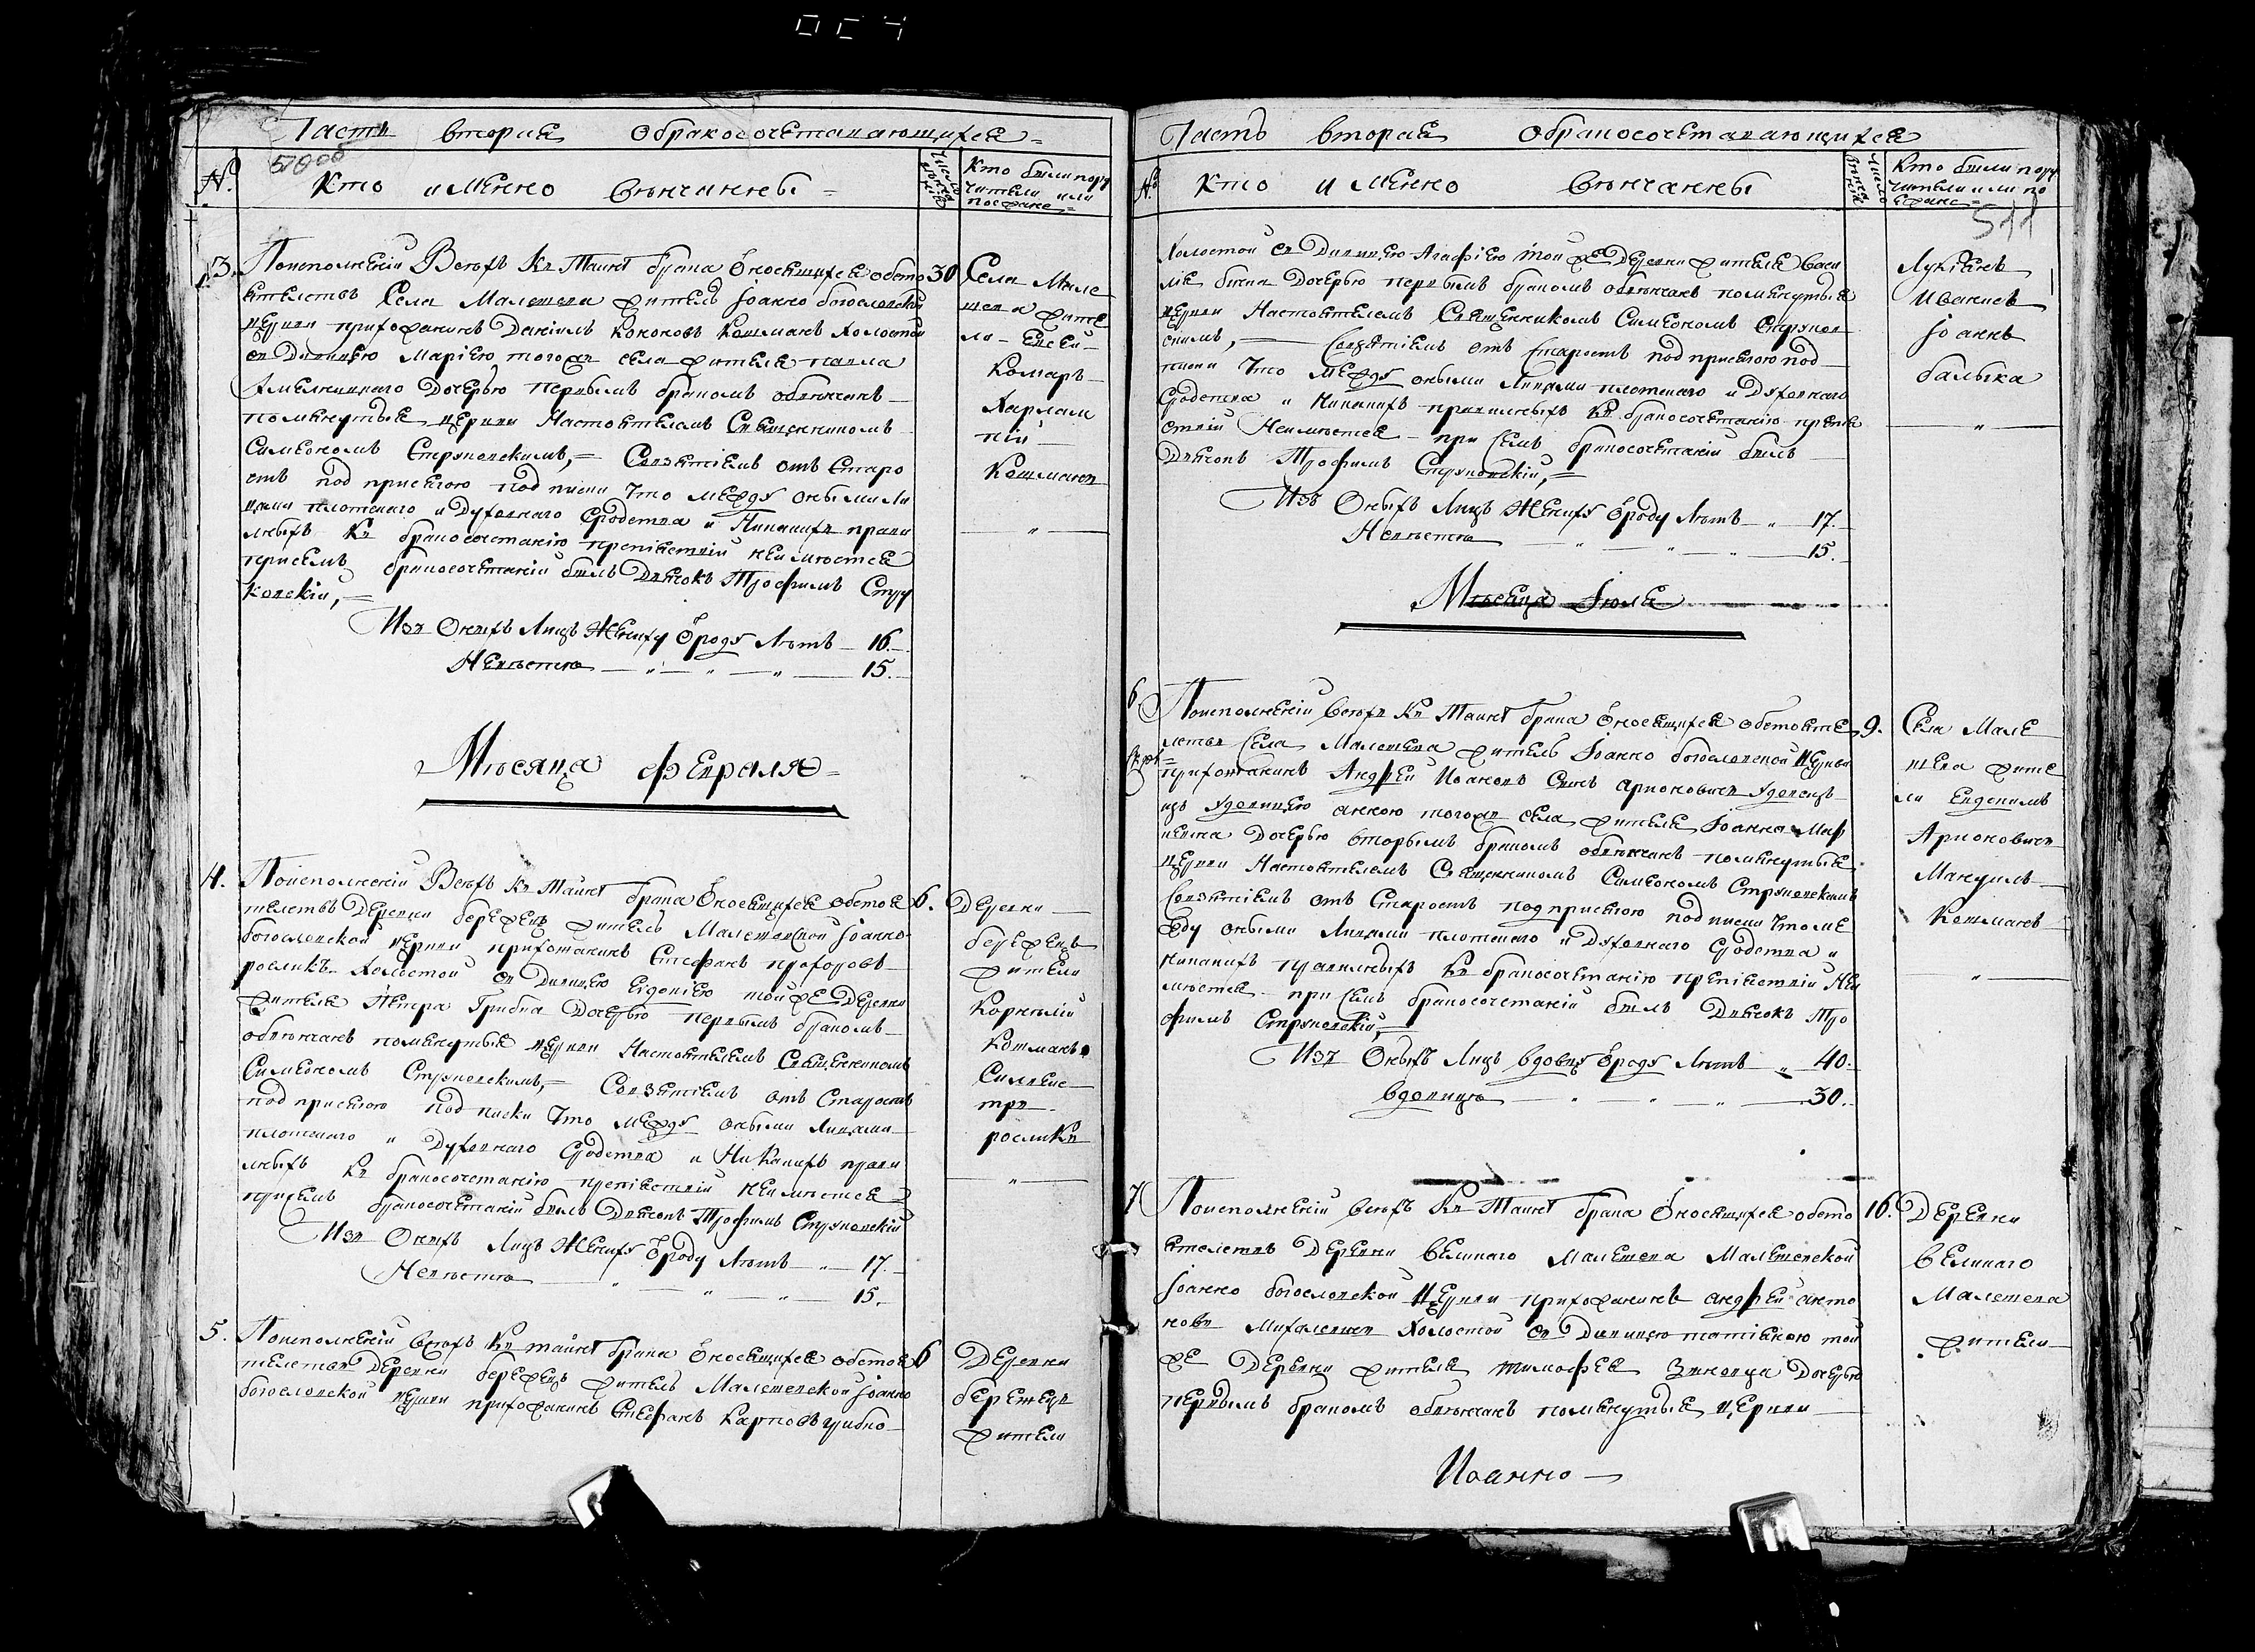 Часть вторая обракосочетавающихся
510об
№.
Кто имянно венчанны
Число венчаній
Кто были пору
чители или
поезжане
3.
Поисполненіи Всехъ Къ Таинст брака Относящихся обсто
30
ятелствъ Села Малешева житель Іоанно богословской
церкви прихожанинъ Даніилъ Кошманъ Холостой
съ Дивицею Маріею тогожъ села жителя Павла
Дочерью первымъ бракомъ обвенчанъ
помянутыя церкви Настоятелемъ Священникомъ
Симеономъ Струковскимъ, Совзятіемъ отъ Старо
стъ под присягою под писки Что между оными Ли
цами плотскаго и Духовнаго Сродства и Никакихъ прави
лныхъ Къ бракосочетанію препятствій неимеется
присемъ бракосочетаніи былъ Дячокъ Трофимъ Стру
ковскій,
Изъ Оныхъ Лицъ Жениху Отроду Летъ 16.
Невестъ 15.
Села Мале
шева жите
ли
Комаръ
Харлам
пій
Кошманъ
Месяца февраля
4.
Поисполненіи Всехъ Къ Таинст брака Относящихся обстоя
6.
телствъ Деревни бережецъ житель Малешевской Іоанно
богословской церкви прихожанинъ Стефанъ
росликъ Холостой съ Дивицею Евдокіею тойже Деревни
жителя Петра Грибка Дочерью первымъ бракомъ
обвенчанъ помянутыя церкви Настоятелемъ Священникомъ
Симеономъ Струковскимъ, Совзятіемъ отъ Старостъ
под присягою под писки Что между оными Лицами
плотскаго и Духовнаго Сродства и Никакихъ прави
лныхъ Къ бракосочетанію препятствій неимеется
присемъ бракосочетаніи былъ Дячокъ Трофимъ Струковскій
Изъ Оныхъ Лицъ Жениху Отроду Летъ 17.
Невестъ 15.
Деревни
бережецъ
жители
Корнилій
Кошманъ
Силвес
тръ
росликъ
5.
Поисполненіи всехъ Къ таинст брака Относящихся обстоя
6
телствъ Деревни бережецъ житель Малешевской Іоанно
богословской церкви прихожанинъ Стефанъ Карповъ
Деревни
бережецъ
жители
Часть вторая обракосочетавающихся
№
кто имянно венчанны
Число венчаній
Кто были пору
чители или по
езжане
511
Холостой съ Дивицею Агафіею той же Деревни жителя Васи
лія Дочерью первымъ бракомъ обвенчанъ помянутыя
церкви Настоятелемъ Священникомъ Симеономъ Струков
скимъ, Совзятіемъ отъ Старостъ под присягою под
писки Что между оными Лицами плотскаго и Духовнаго
Сродства и Никакихъ правилныхъ Къ бракосочетанію препя
ствій Неимеется при семъ бракосочетаніи былъ
Дячокъ Трофимъ Струковскій,
Изъ Оныхъ Лицъ Жениху Отроду Летъ 17.
Невестъ 15.
Лукіянъ
Іоаннъ
балыка
Месяца Іюля
6
Поисполненіи всехъ Къ Таинст брака Относящихся обстояте
9.
лствъ Села Малешева житель Іоанно богословской церкви
прихожанинъ Андрей Іоановъ Сынъ Арионовичъ удовецъ
изъ удовицею анною тогожъ села жителя Іоанна
Дочерью вторымъ бракомъ обвенчанъ помянутыя
церкви Настоятелемъ Священникомъ Симеономъ Струковскимъ
Совзятіемъ отъ Старостъ под присягою под писки Что ме
жду оными Лицами плотскаго и Духовнаго Сродства и
никакихъ правилныхъ Къ бракосочетанію препятствій Неи
меется при семъ бракосочетаніи былъ Дячокъ Тро
фимъ Струковскій,
Изъ Оныхъ Лицъ вдовцу Отроду Летъ 40.
вдовицы 30.
Села Мале
шева жите
ли Евдокимъ
Арионовичъ
Мануилъ
Кошманъ
7
Поисполненіи всехъ Къ Таинст брака Относящихся обсто
16.
ятелствъ Деревни великаго Малешева Малешевской
Іоанно богословской Церкви прихожанинъ андрей анто
новъ Михалевичъ Холостой съ Дивицею татіяною той
же Деревни жителя тимофея Дочерью
первымъ бракомъ обвенчанъ помянутыя церкви
Деревни
великаго
Малешева
жители
Иоанно